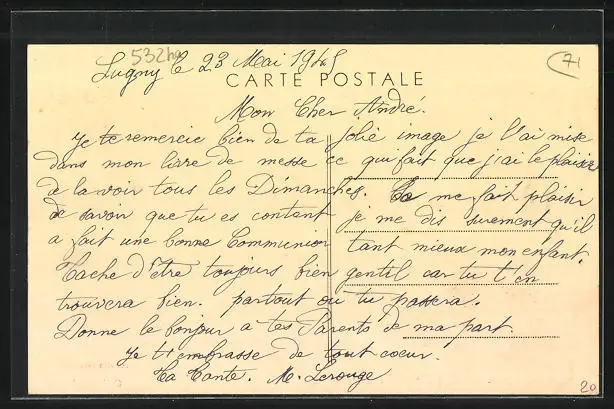 532ha
71
Lugny le 23 Mai 1945
CARTE POSTALE
Mon Cher André.
Je te remercie bien de ta jolie image je l'ai mise
dans mon livre de messe ce qui fait que j'ai le plaisir
de la voir tous les Dimanches. Ca me fait plaisir
de savoir que tu es content je me dis surement qu'il
a fait une bonne Communion tant mieux mon enfant.
Tache d'être toujours bien gentil car tu t'en
trouvera bien. partout ou tu passera.
Donne le bonjour a tes Parents de ma part.
Je t'embrasse de tout coeur.
Ta Tante. M. Lerouge
20